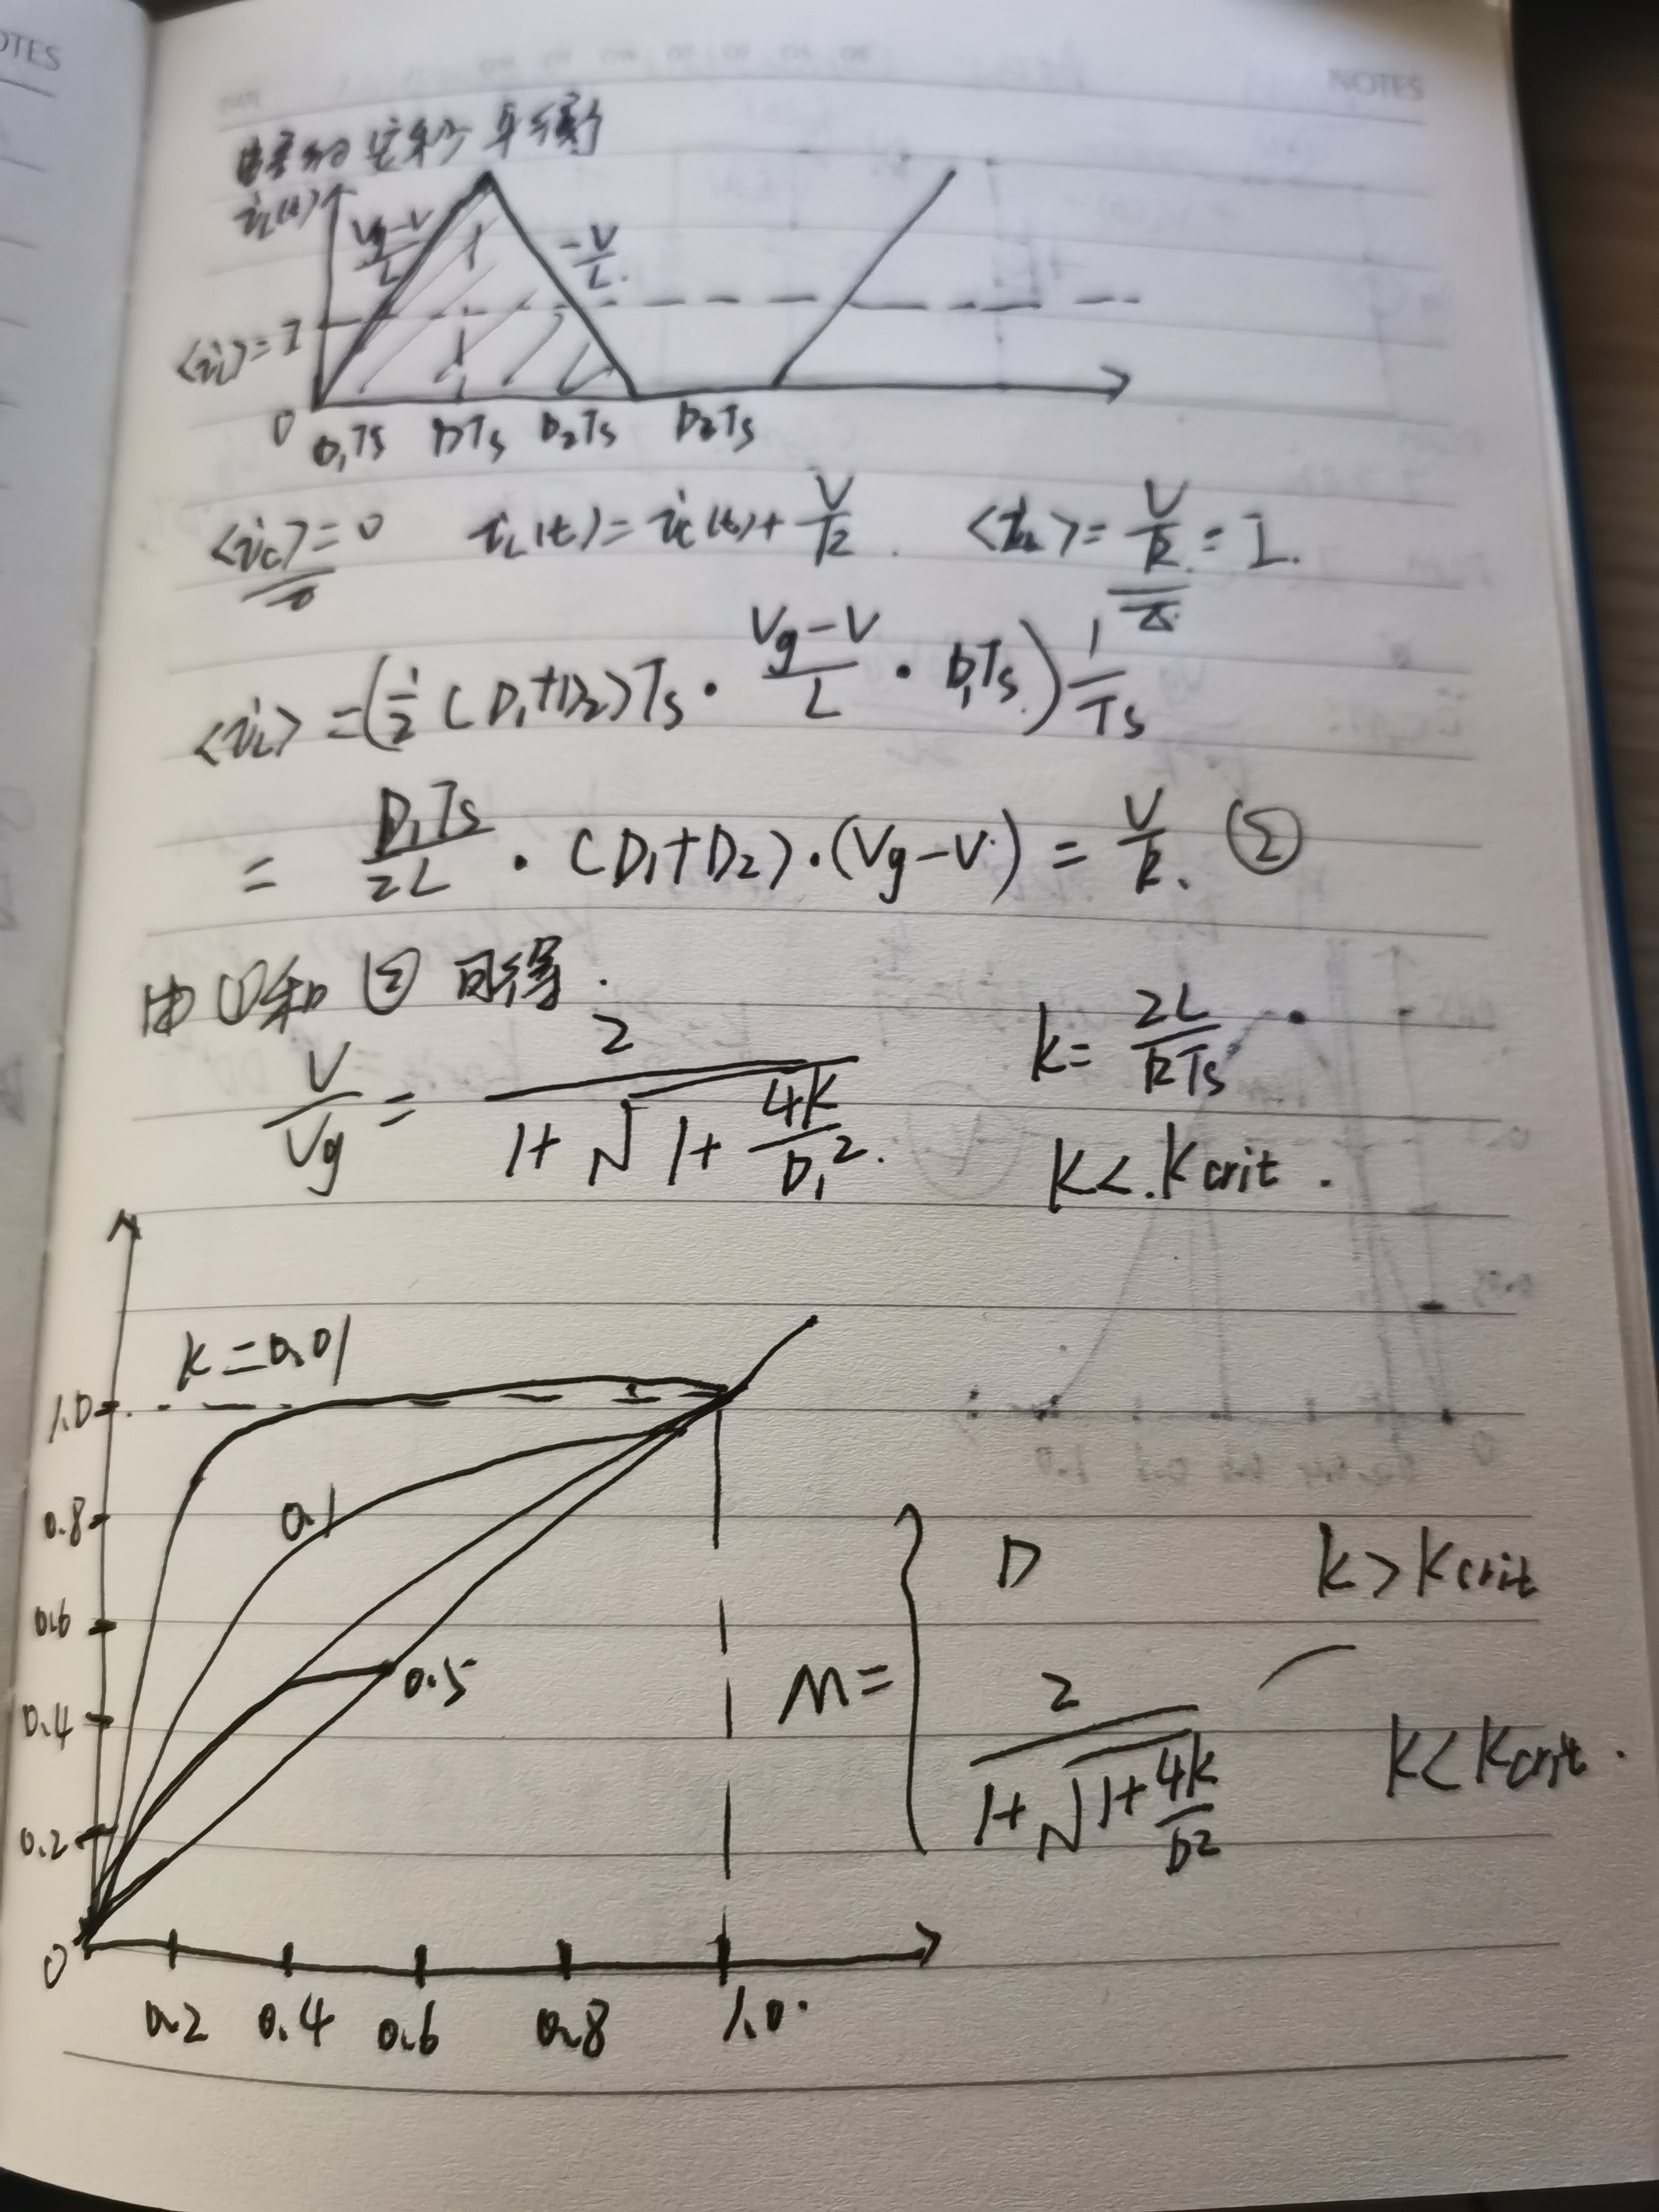 OTES
NOTES
DATE
电容的安秒平衡
i_L(t)
(Vg-V)/L
-V/L.
<i_L>=I
0 D₁Ts DTs D₂Ts D₂Ts
<i_c>=0 i_L(t)=i_c(t)+V/R. <i_L>=V/R=I.
<i_L>=(1/2(D₁+D₂)Ts·(Vg-V)/L·D₁Ts.)1/Ts
=D₁Ts/2L·(D₁+D₂)·(Vg-V)=V/R. ②
由①和②可得.
V/Vg=2/(1+√(1+4K/D₁²)). k=2L/RTs
K<Kcrit.
k=0.01
1.0
0.1
0.8
0.6
0.5
0.4
0.2
0
0.2 0.4 0.6 0.8 1.0
M={
D k>Kcrit
2/(1+√(1+4k/D2)) K<Kcrit.